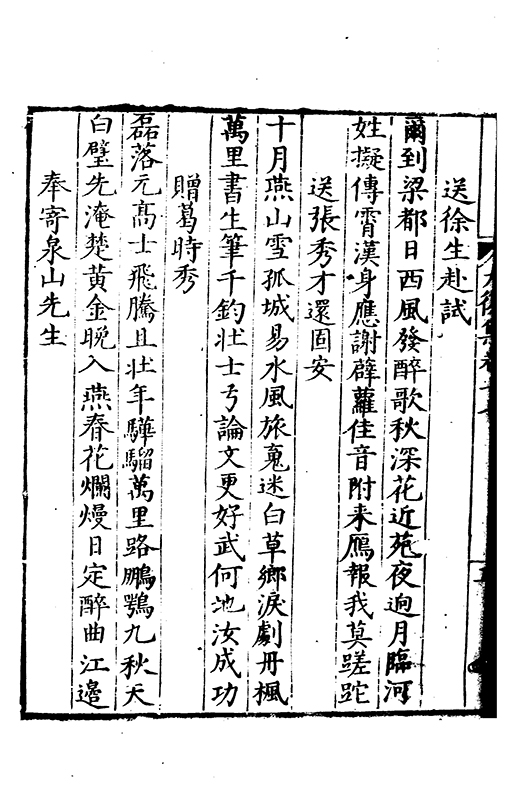 送徐生赴試
爾到梁都日西風發醉歌秋深花近苑夜逈月臨河
姓擬傳霄漢身應謝薜蘿佳音附来鴈報我莫蹉跎
送張秀才還固安
十月燕山雪孤城易水風旅䰟迷白草鄉淚劇丹楓
萬里書生筆千鈞壮士弓論文更好武何地汝成功
贈葛時秀
磊落元髙士飛騰且壮年驊騮萬里路鵬鶚九秋天
白璧先淹楚黃金晚入燕春花爛熳日定醉曲江邉
奉寄泉山先生